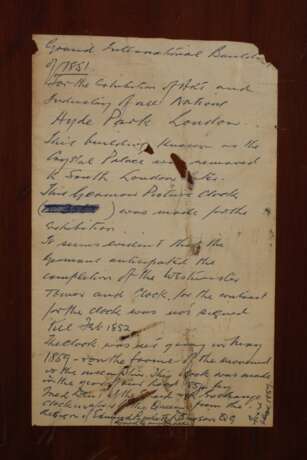 Grand International Building
of 1851
For the exhibition of Arts and
Industry of all Nations
Hyde Park London
This building known as the
Crystal Palace was removed
to South London later.
This German Picture Clock
) was made for the
exhibition.
It seems evident that the
Germans anticipated the
completion of the Westminster
Tower and Clock, for the contract
for the clock was not signed
till Feb 1852
The clock was not going in May
1859
in the
Fred Dent of the Exchange
clockmaker to the Queen from the
design of Edmund Beckett Denison QC